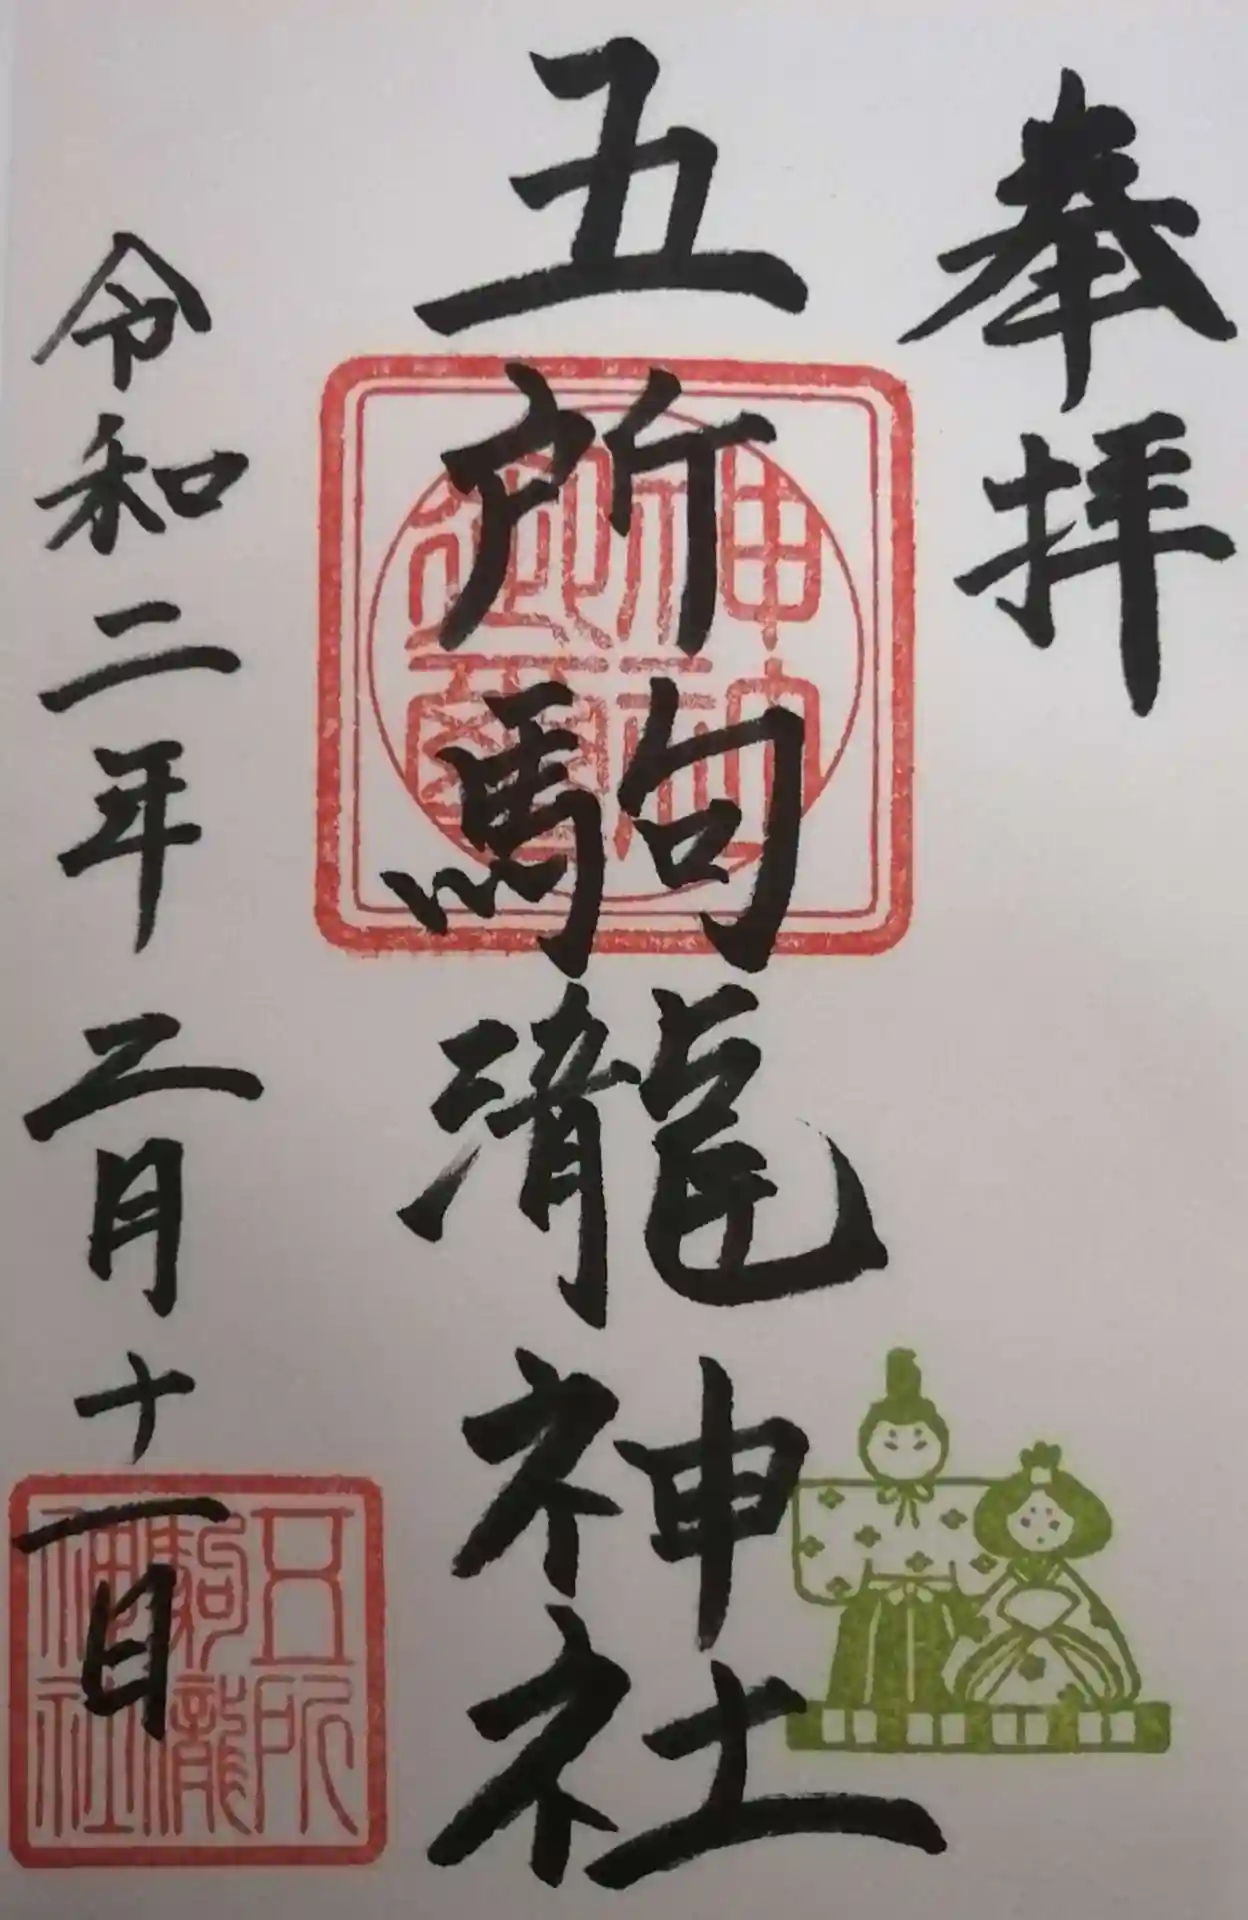 奉拝
五所駒瀧神社
令和二年三月十一日
五所
駒瀧
神社